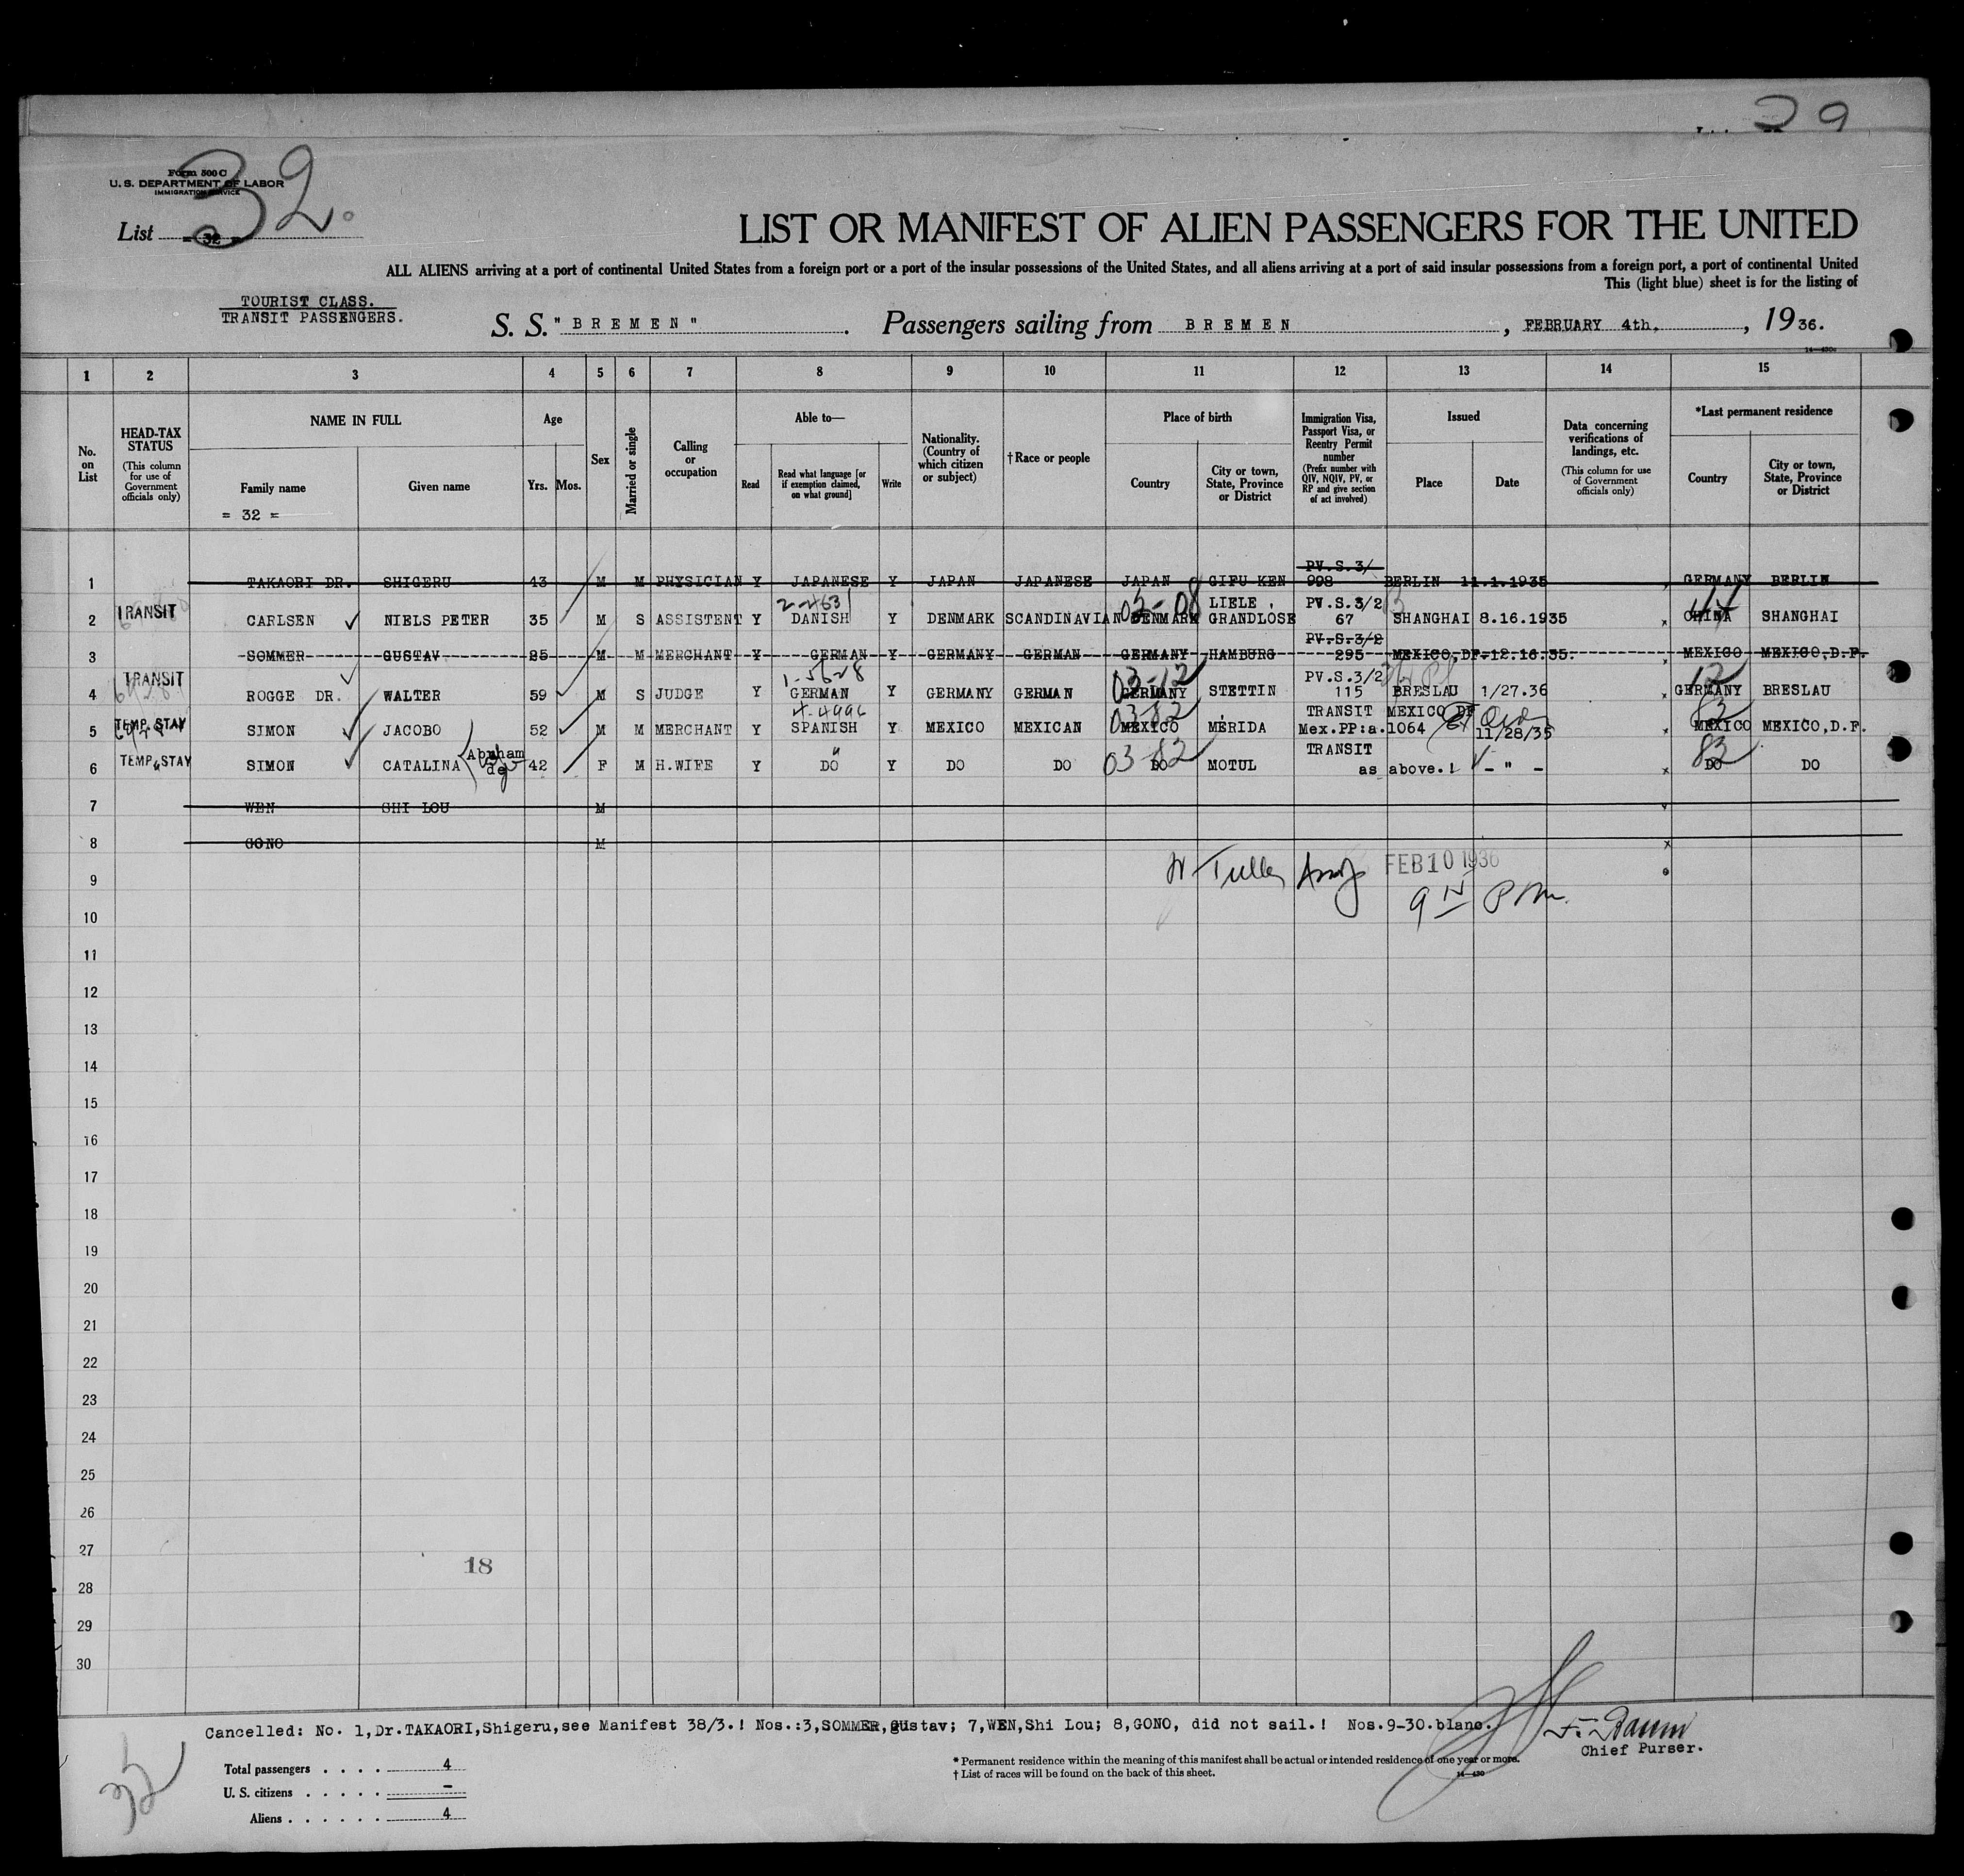 29
Form 500 C
U. S. DEPARTMENT OF LABOR
IMMIGRATION SERVICE
32.
List = 32 =
LIST OR MANIFEST OF ALIEN PASSENGERS FOR THE UNITED
ALL ALIENS arriving at a port of continental United States from a foreign port or a port of the insular possessions of the United States, and all aliens arriving at a port of said insular possessions from a foreign port, a port of continental United
This (light blue) sheet is for the listing of
TOURIST CLASS.
TRANSIT PASSENGERS.
S. S. " B R E M E N " . Passengers sailing from B R E M E N , FEBRUARY 4th, , 1936.
1 2 3 4 5 6 7 8 9 10 11 12 13 14 15
No. on List
HEAD-TAX STATUS (This column for use of Government officials only)
NAME IN FULL
Family name
Given name
= 32 =
Age
Yrs. Mos.
Sex
Married or single
Calling or occupation
Able to—
Read
Read what language [or if exemption claimed, on what ground]
Write
Nationality. (Country of which citizen or subject)
†Race or people
Place of birth
Country
City or town, State, Province or District
Immigration Visa, Passport Visa, or Reentry Permit number (Prefix number with QIV, NQIV, PV, or RP and give section of act involved)
Issued
Place
Date
Data concerning verifications of landings, etc. (This column for use of Government officials only)
*Last permanent residence
Country
City or town, State, Province or District
PV.S.3/
1 TAKAORI DR. SHIGERU 43 M M PHYSICIAN Y JAPANESE Y JAPAN JAPANESE JAPAN GIFU KEN 998 BERLIN 11.1.1935 GERMANY BERLIN
TRANSIT 2-4631 02-08 LIELE PV.S.3/2 44
2 CARLSEN NIELS PETER 35 M S ASSISTENT Y DANISH Y DENMARK SCANDINAVIAN DENMARK GRANDLÖSE 67 SHANGHAI 8.16.1935 x CHINA SHANGHAI
PV.S.3/2
3 SOMMER GUSTAV 25 M M MERCHANT Y GERMAN Y GERMANY GERMAN GERMANY HAMBURG 295 MEXICO,DF. 12.16.35. MEXICO MEXICO,D.F.
TRANSIT 1-5628 03-12 PV.S.3/2 12
4 ROGGE DR. WALTER 59 M S JUDGE Y GERMAN Y GERMANY GERMAN GERMANY STETTIN 115 BRESLAU 1/27.36 x GERMANY BRESLAU
TEMP. STAY 4-4996 03-82 TRANSIT MEXICO DF 83
5 SIMON JACOBO 52 M M MERCHANT Y SPANISH Y MEXICO MEXICAN MEXICO MÉRIDA Mex.PP:a.1064 11/28/35 x MEXICO MEXICO,D.F.
TEMP. STAY Abraham de " 03 82 TRANSIT 83
6 SIMON CATALINA 42 F M H.WIFE Y DO Y DO DO DO MOTUL as above.! - " - x DO DO
7 WEN SHI LOU M
8 GONO M x
9 FEB 10 1936
9 PM.
10
11
12
13
14
15
16
17
18
19
20
21
22
23
24
25
26
27
18
28
29
30
Cancelled: No. 1,Dr.TAKAORI,Shigeru,see Manifest 38/3.! Nos.:3,SOMMER,Gustav; 7,WEN,Shi Lou; 8,GONO, did not sail.! Nos.9-30.blanc.
Chief Purser.
32
Total passengers . . . . 4
U. S. citizens . . . . . –
Aliens . . . . . . 4
* Permanent residence within the meaning of this manifest shall be actual or intended residence of one year or more.
† List of races will be found on the back of this sheet.
14—430